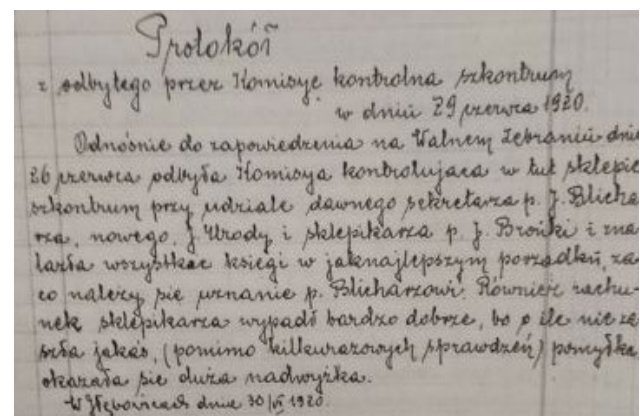 Protokół
z odbytego przez Komisyę kontrolna szkontrum
w dniu 29 czerwca 1920.
Odnośnie do zapowiedzenia na Walnem Zebraniu dnia
26 czerwca odbyła Komisya kontrolujaca w tut sklepie
szkontrum przy udziale dawnego sekretarza p. J. Blicha
rza, nowego, J. Urody i sklepikarza p. J. Brońki i zna
lazła wszystkie księgi w jaknajlepszym porządku, za
co należy sie uznanie p. Blicharzowi. Również rachu-
nek sklepikarza wypadł bardzo dobrze, bo o ile nie za
szła jakaś, (pomimo kilkurazowych sprawdzeń) pomyłka
okazała sie duża nadwyżka.
W Głębowicach dnia 30/VI 1920.